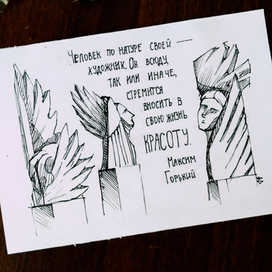 Человек по натуре своей —
художник. Он всюду,
так или иначе,
стремится
вносить в
свою жизнь
красоту.
Максим
Горький